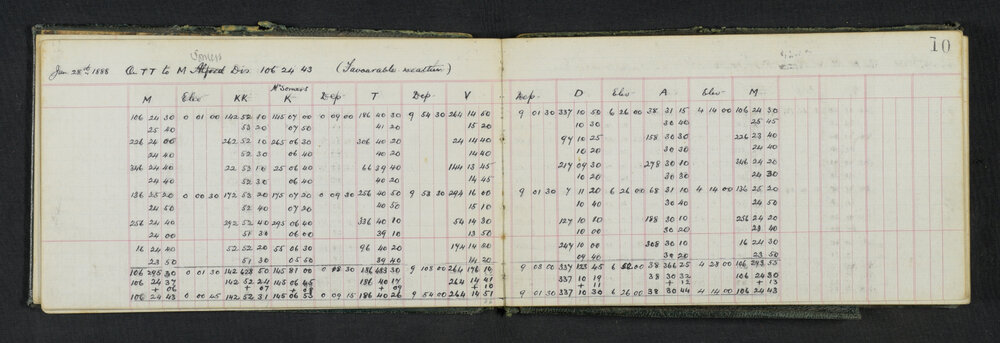 10
Somers
Jan. 28th 1888 On TT to M Alfred Dis 106 24 43 (Favourable weather)
Mt Somers
M Elev KK K Dep T Dep V Dep D Elev A Elev M
106 24 30 0 01 00 142 52 10 145 07 00 0 09 00 186 40 30 9 54 30 264 14 50 9 01 30 337 10 50 6 26 00 38 31 15 4 14 00 106 24 30
25 20 53 20 07 50 41 20 15 20 10 30 30 40 25 45
226 24 00 262 52 10 265 06 30 306 40 20 24 14 40 97 10 25 158 30 30 226 23 40
24 40 52 30 06 40 40 20 14 40 10 20 30 30 24 40
346 24 40 22 53 10 25 06 40 66 39 40 144 13 45 217 09 30 278 30 10 346 24 20
24 40 52 30 06 40 40 20 14 45 10 20 30 30 24 30
136 25 20 0 00 30 172 53 20 175 07 20 0 09 30 256 40 50 9 53 30 294 16 00 9 01 30 7 11 20 6 26 00 68 31 10 4 14 00 136 25 20
24 50 52 40 07 20 40 50 15 10 10 40 30 40 24 50
256 24 40 292 52 40 295 06 40 336 40 10 54 14 30 127 10 10 188 30 10 256 24 20
24 00 51 30 06 00 39 10 13 50 10 00 30 20 23 40
16 24 40 52 52 20 55 06 30 96 40 20 174 14 20 247 10 00 308 30 10 16 24 30
23 50 51 30 05 50 39 40 14 20 09 40 30 20 23 50
106 295 30 0 01 30 142 628 50 145 81 00 0 18 30 186 483 30 9 108 00 264 176 10 9 03 00 337 123 45 6 52 00 38 366 25 4 28 00 106 293 55
106 24 37 142 52 24 145 06 45 186 40 17 264 14 41 337 10 19 38 30 32 106 24 30
+ 06 + 07 + 08 + 09 + 10 + 11 + 12 + 13
106 24 43 0 00 45 142 52 31 145 06 53 0 09 15 186 40 26 9 54 00 264 14 51 9 01 30 337 10 30 6 26 00 38 30 44 4 14 00 106 24 43